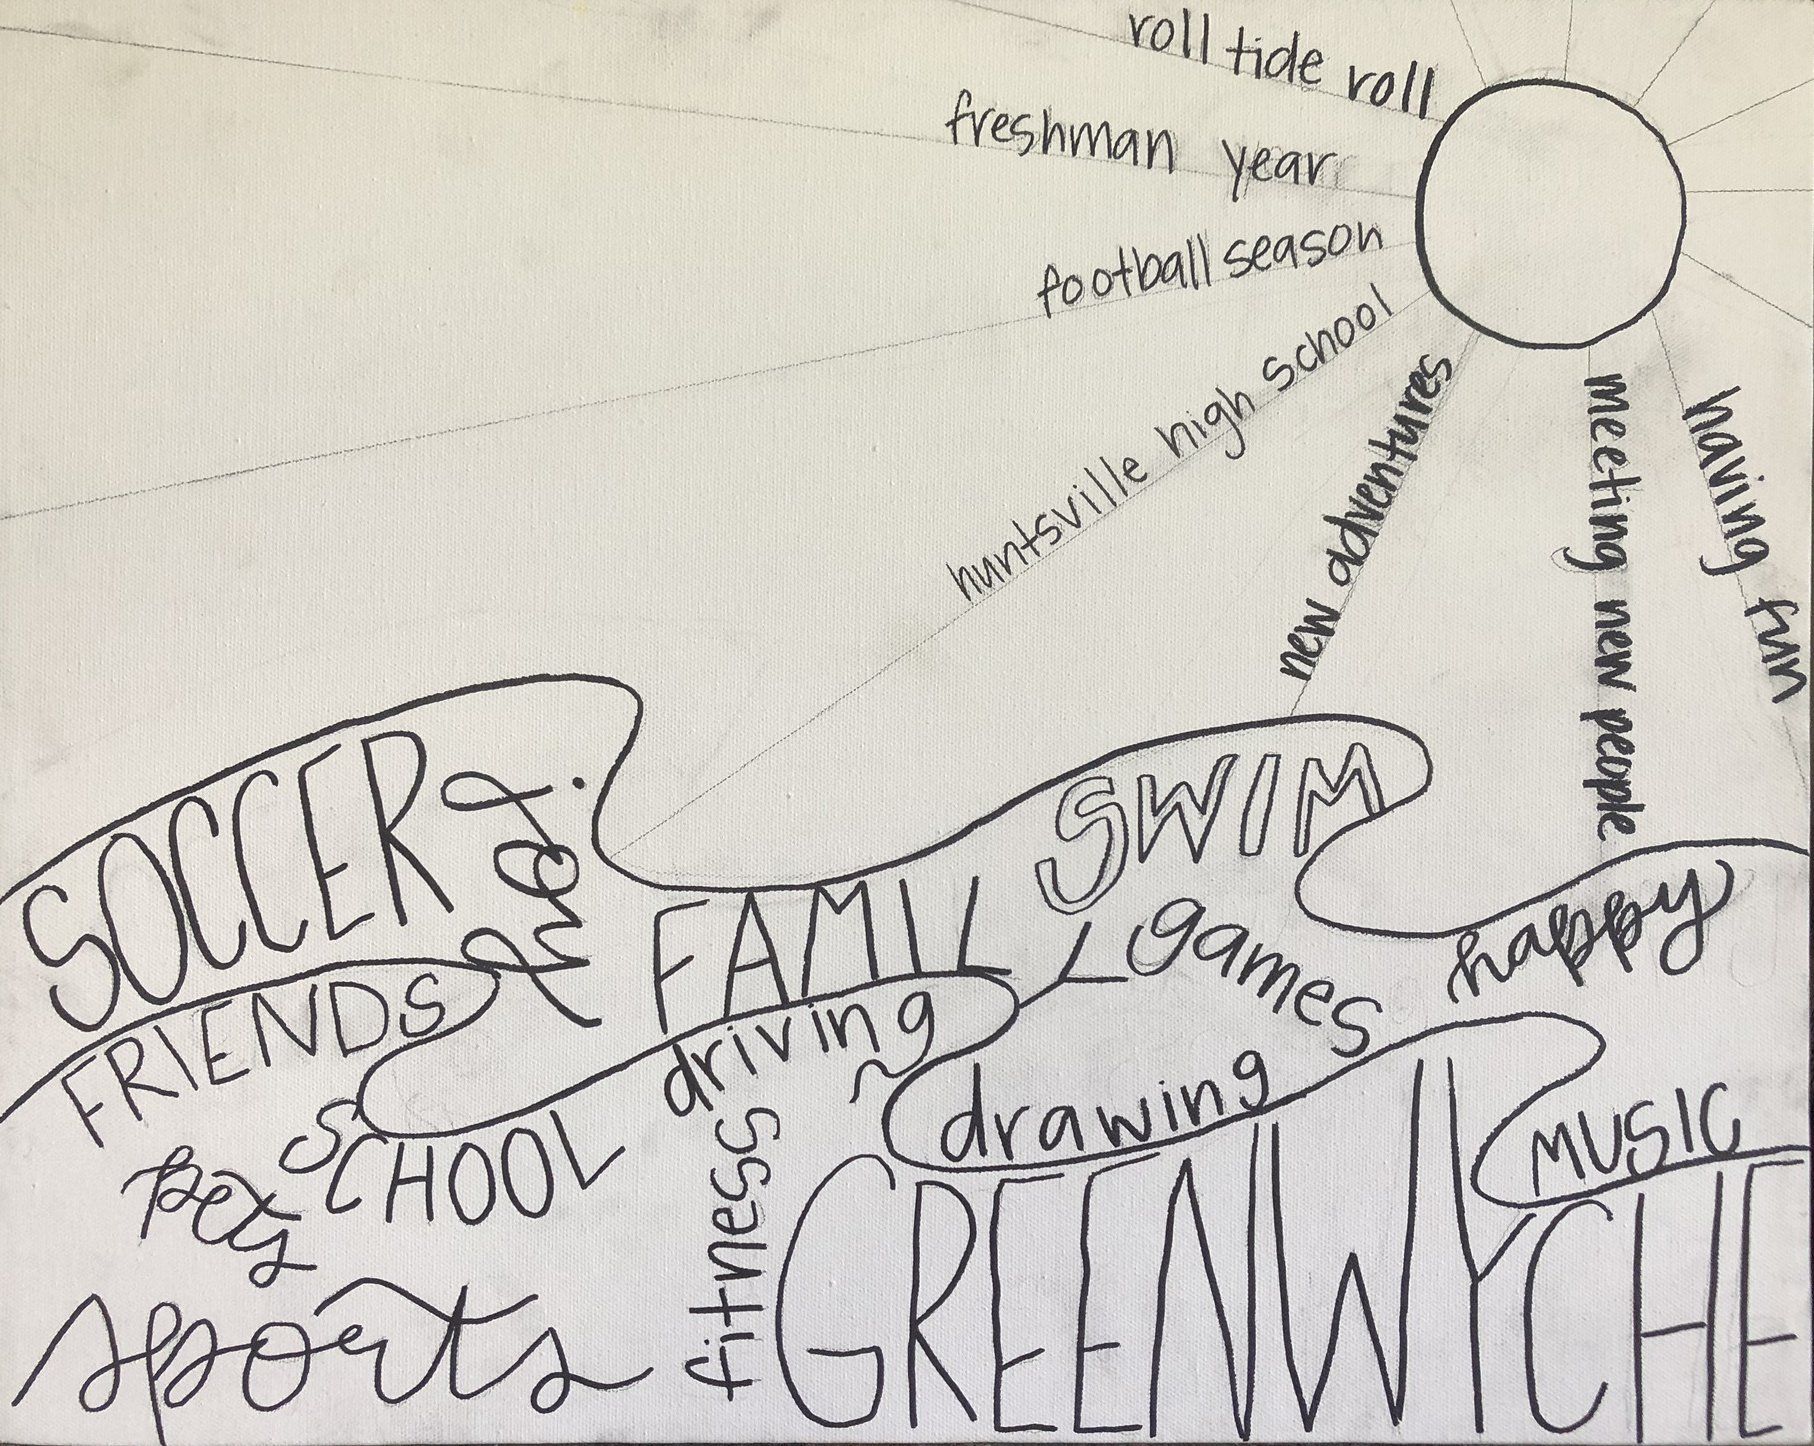 roll tide roll
freshman year
football season
huntsville high school
new adventures
meeting new people
having fun
SOCCER
SWIM
FAMILY
games
happy
FRIENDS
driving
drawing
MUSIC
SCHOOL
pets
fitness
GREENWYCHE
sports